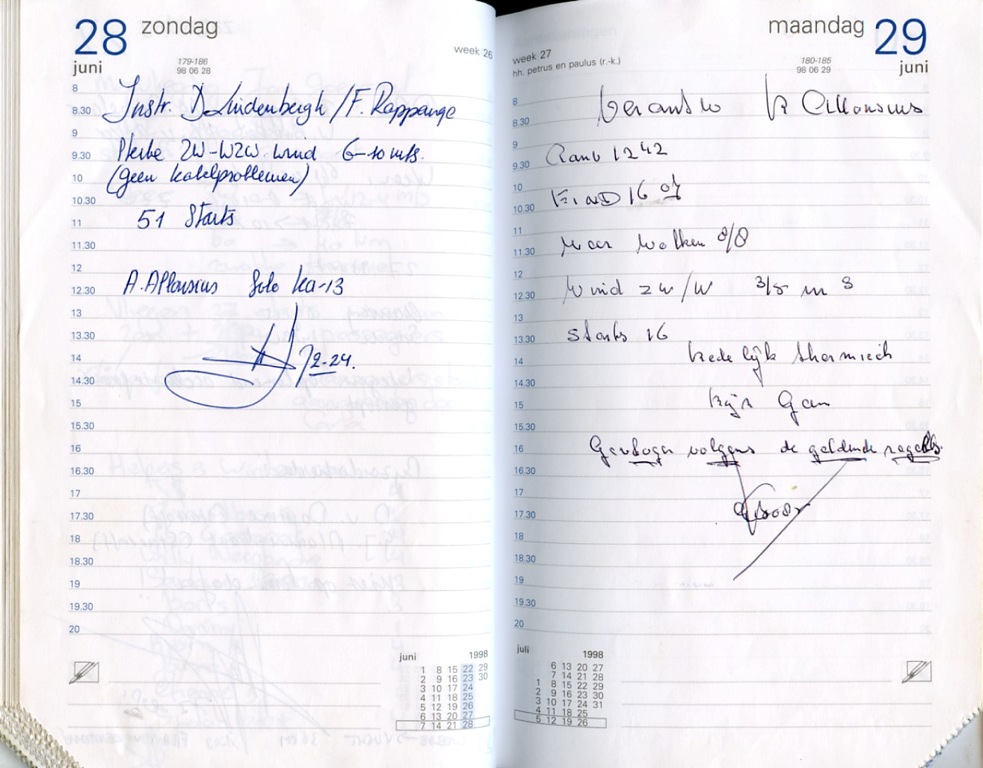 28 zondag
juni
week 26
179-186
98 06 28
8
8.30 Instr. D Lindenbergh / F. Rappange
9
9.30 ZW-WZW. wind 6-10 m/s.
10 (geen kabelproblemen)
10.30
11 51 Starts
11.30
12
12.30 A. Allonsius Solo Ka-13
13
13.30
14 2-24.
14.30
15
15.30
16
16.30
17
17.30
18
18.30
19
19.30
20
juni 1998
1 8 15 22 29
2 9 16 23 30
3 10 17 24
4 11 18 25
5 12 19 26
6 13 20 27
7 14 21 28
maandag 29
juni
week 27
hh. petrus en paulus (r.-k.)
180-185
98 06 29
8
8.30
9
9.30 1242
10
10.30 Eind 16
11
11.30 Wolken 8/8
12
12.30 Wind zw/w 3/5 m s
13
13.30 starts 16
14 Redelijk thermiek
14.30
15
15.30
16 Gevlogen volgens de geldende regels.
16.30
17
17.30
18
18.30
19
19.30
20
juli 1998
6 13 20 27
7 14 21 28
1 8 15 22 29
2 9 16 23 30
3 10 17 24 31
4 11 18 25
5 12 19 26